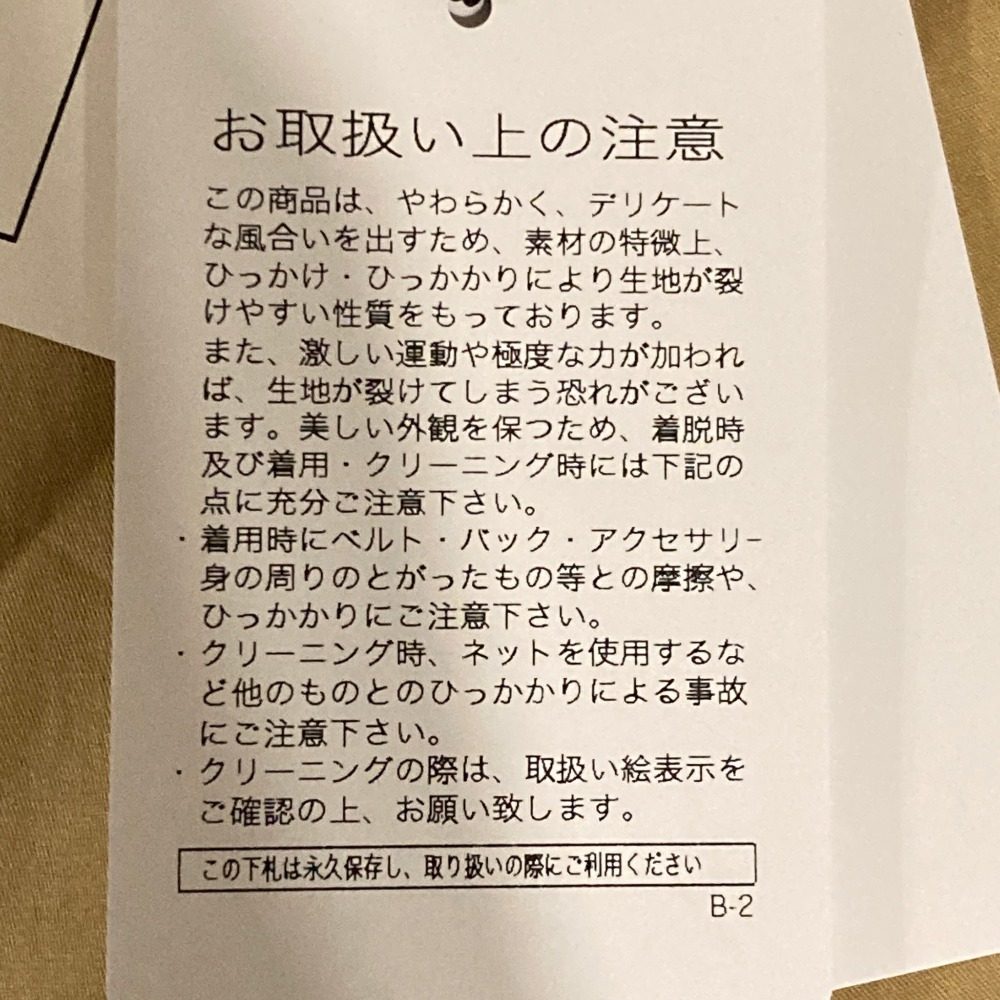 お取扱い上の注意
この商品は、やわらかく、デリケート
な風合いを出すため、素材の特微上、
ひっかけ・ひっかかりにより生地が裂
けやすい性質をもっております。
また、激しい運動や極度な力が加われ
ば、生地が裂けてしまう恐れがござい
ます。美しい外観を保つため、着脱時
及び着用・クリーニング時には下記の
点に充分ご注意下さい。
・着用時にベルト・バック・アクセサリ-
身の周りのとがったもの等との摩擦や、
ひっかかりにご注意下さい。
・クリーニング時、ネットを使用するな
ど他のものとのひっかかりによる事故
にご注意下さい。
・クリーニングの際は、取扱い絵表示を
ご確認の上、お願い致します。
この下札は永久保存し、取り扱いの際にご利用ください
B-2